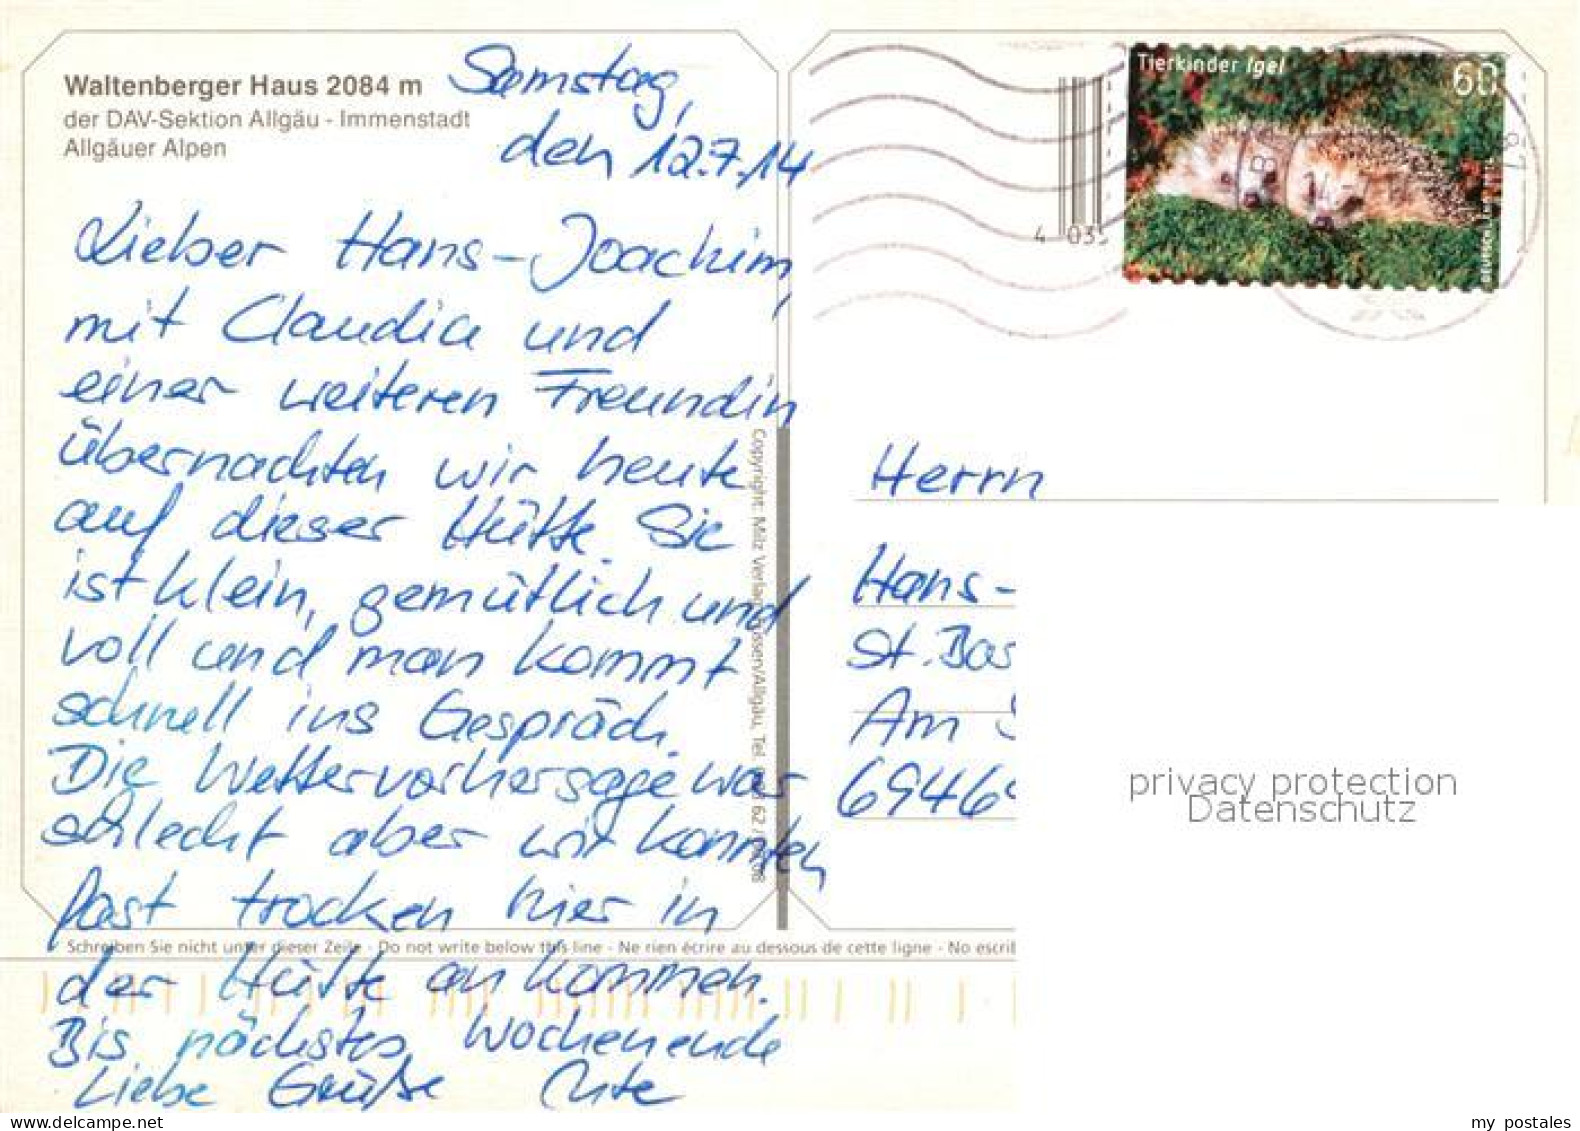 Waltenberger Haus 2084 m
der DAV-Sektion Allgäu - Immenstadt
Allgäuer Alpen
Samstag,
den 12.7.14
Lieber Hans-Joachim,
mit Claudia und
einer weiteren Freundin
übernachten wir heute
auf dieser Hütte. Sie
ist klein, gemütlich und
voll und man kommt
schnell ins Gespräch.
Die Wettervorhersage war
schlecht aber wir konnten
fast trocken hier in
Schreiben Sie nicht unter dieser Zeile - Do not write below this line - Ne rien écrire au dessous de cette ligne - No escrib
der Hütte ankommen.
Bis nächstes Wochenende
Liebe Grüße Ute
Copyright: Milz Verlag Füssen/Allgäu, Tel.
Tierkinder Igel
60
4 03
Herrn
Hans-
St. Bas
Am S
6946
privacy protection
Datenschutz
my postales